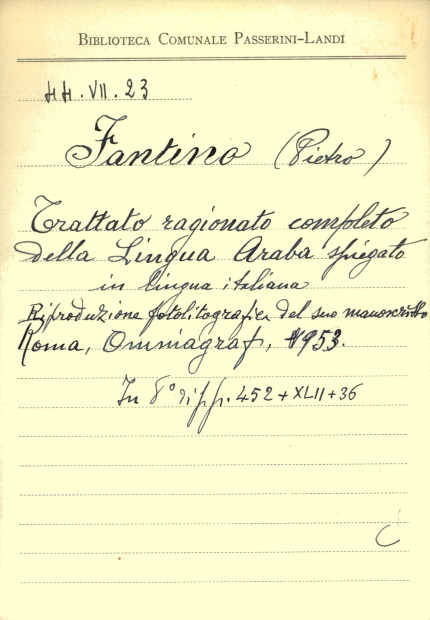 BIBLIOTECA COMUNALE PASSERINI-LANDI
HH.VII.23
Fantino (Pietro)
Trattato ragionato completo
della Lingua Araba spiegato
in lingua italiana
Riproduzione fotolitografica del suo manoscritto
Roma, Ommiagraf, 1953.
In 8° di pp. 452+XLII+36
C